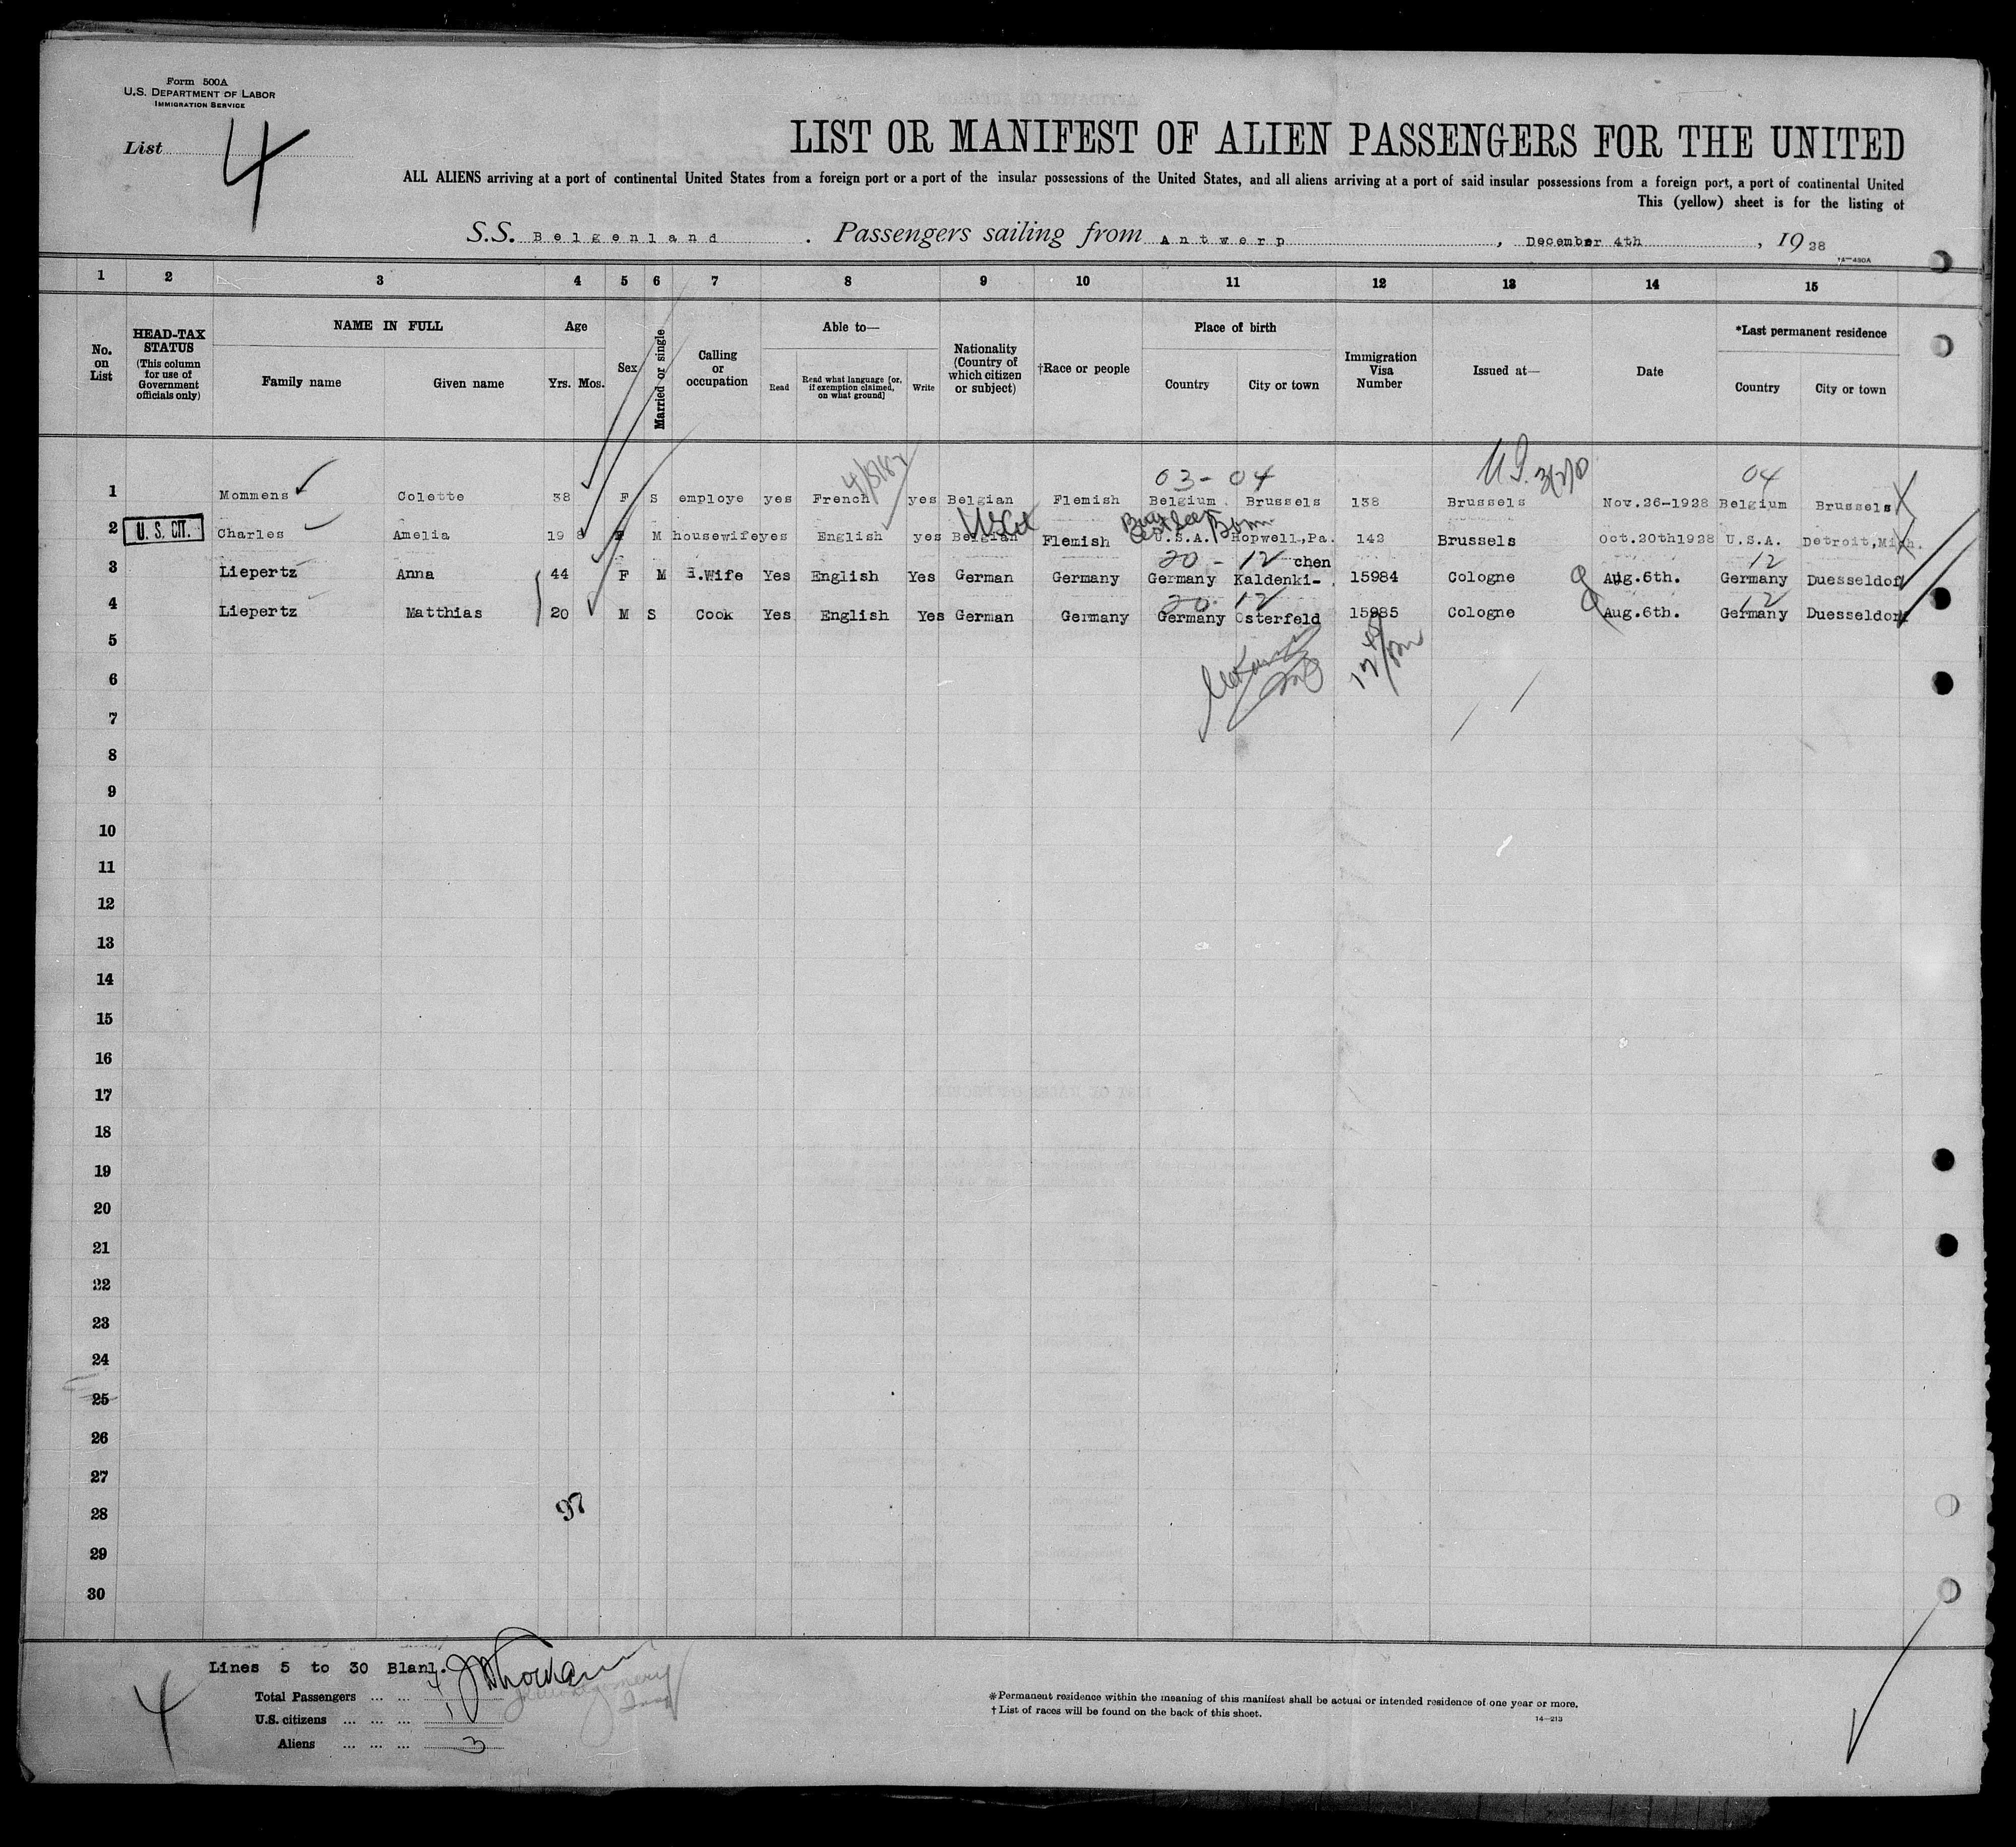 Form 500A
U.S. DEPARTMENT OF LABOR
IMMIGRATION SERVICE
List 4
LIST OR MANIFEST OF ALIEN PASSENGERS FOR THE UNITED
ALL ALIENS arriving at a port of continental United States from a foreign port or a port of the insular possessions of the United States, and all aliens arriving at a port of said insular possessions from a foreign port, a port of continental United
This (yellow) sheet is for the listing of
S.S. Belgenland . Passengers sailing from Antwerp , December 4th , 19 28
14—430A
1 2 3 4 5 6 7 8 9 10 11 12 13 14 15
No. on List
HEAD-TAX STATUS
(This column for use of Government officials only)
NAME IN FULL
Family name Given name
Age
Yrs. Mos.
Sex
Married or single
Calling or occupation
Able to—
Read Read what language [or, if exemption claimed, on what ground] Write
Nationality (Country of which citizen or subject)
†Race or people
Place of birth
Country City or town
Immigration Visa Number
Issued at—
Date
*Last permanent residence
Country City or town
03 - 04 04
1 Mommens Colette 38 F S employe yes French yes Belgian Flemish Belgium Brussels 138 Brussels Nov.26-1928 Belgium Brussels
2 U. S. CIT. Charles Amelia 19 8 F M housewife yes English yes Belgian Flemish U.S.A. Hopwell,Pa. 142 Brussels Oct.20th1928 U.S.A. Detroit,Mich.
20 - 12 chen 12
3 Liepertz Anna 44 F M H.Wife Yes English Yes German Germany Germany Kaldenki- 15984 Cologne Aug.6th. Germany Duesseldorf
20 12 12
4 Liepertz Matthias 20 M S Cook Yes English Yes German Germany Germany Osterfeld 15985 Cologne Aug.6th. Germany Duesseldorf
5
6
7
8
9
10
11
12
13
14
15
16
17
18
19
20
21
22
23
24
25
26
27
97
28
29
30
Lines 5 to 30 Blank.
4
Total Passengers ... ... 4
U.S. citizens ... ... ... 1
Aliens ... ... ... 3
*Permanent residence within the meaning of this manifest shall be actual or intended residence of one year or more.
†List of races will be found on the back of this sheet.
14—213